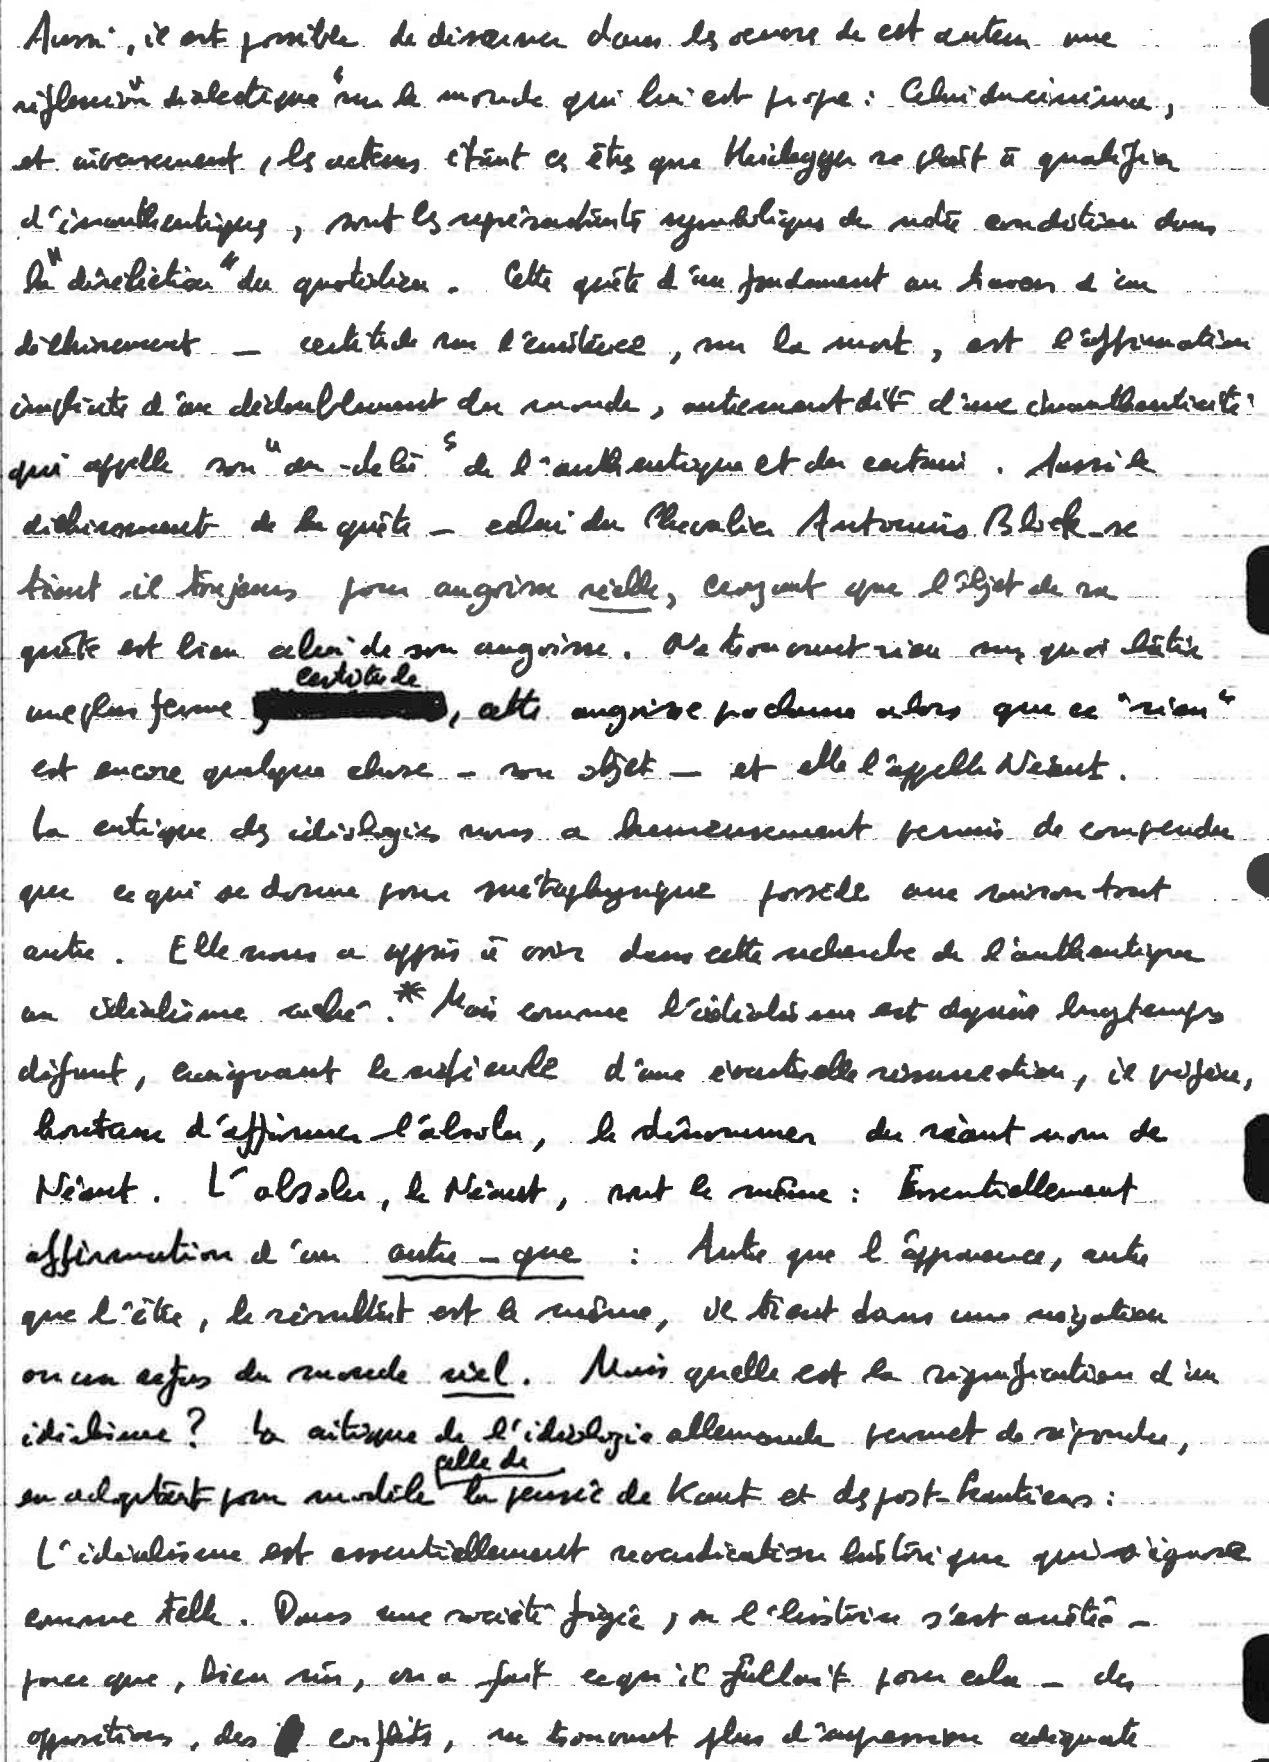 Aussi, il est possible de discerner dans les œuvres de cet auteur une
réflexion "dialectique" sur le monde qui lui est propre : Celui du cinéma,
et inversement, les acteurs étant ces êtres que Heidegger se plaît à qualifier
d'inauthentiques, sont les représentants symboliques de notre condition dans
la "déréliction" du quotidien. Cette quête d'un fondement au travers d'un
déchirement - certitude sur l'existence, sur la mort, est l'affirmation
implicite d'un dédoublement du monde, autrement dit d'une inauthenticité
qui appelle son "au-delà" de l'authentique et du certain. Aussi le
déchirement de la quête - celui du Chevalier Antonius Block - se
tient-il toujours pour angoisse réelle, croyant que l'objet de sa
quête est bien celui de son angoisse. Ne trouvant rien sur quoi bâtir
une plus ferme certitude, cette angoisse proclame alors que ce "rien"
est encore quelque chose - son objet - et elle l'appelle Néant.
La critique des idéologies nous a heureusement permis de comprendre
que ce qui se donne pour métaphysique possède une raison tout
autre. Elle nous a appris à voir dans cette recherche de l'authentique
un idéalisme caché.* Mais comme l'idéalisme est depuis longtemps
défunt, craignant le ridicule d'une éventuelle résurrection, il préfère,
honteux d'affirmer l'absolu, le dénommer du séant nom de
Néant. L'absolu, le Néant, sont le même : Essentiellement
affirmation d'un autre-que : Autre que l'apparence, autre
que l'être, le résultat est le même, il tient dans une négation
ou un refus du monde réel. Mais quelle est la signification d'un
idéalisme ? La critique de l'idéologie allemande permet de répondre,
en adoptant pour modèle celle de la pensée de Kant et des post-kantiens :
L'idéalisme est essentiellement revendication historique qui s'ignore
comme telle. Dans une société figée, où l'histoire s'est arrêtée -
parce que, bien sûr, on a fait ce qu'il fallait pour cela - des
oppositions, des conflits, ne trouvent plus d'expression adéquate